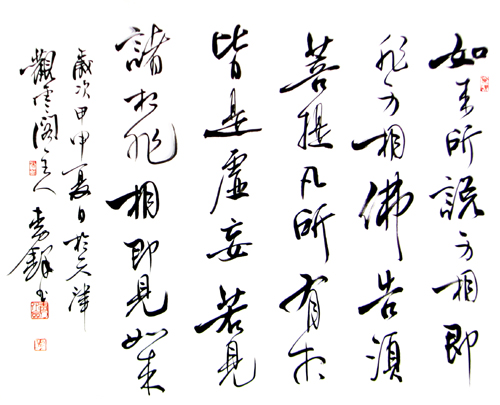 如来所說身相即
非身相佛告須
菩提凡所有相
皆是虛妄若見
諸相非相即見如来
歲次甲申夏日於天津
觀雲閣主人